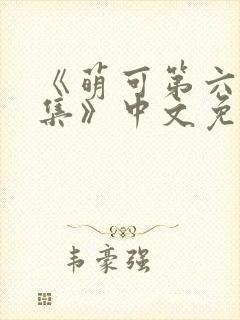 《萌可第六
集》中文免
韦豪强